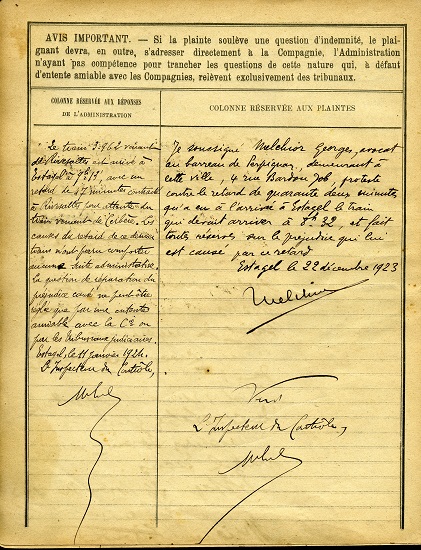 AVIS IMPORTANT. — Si la plainte soulève une question d'indemnité, le plai-
gnant devra, en outre, s'adresser directement à la Compagnie, l'Administration
n'ayant pas compétence pour trancher les questions de cette nature qui, à défaut
d'entente amiable avec les Compagnies, relèvent exclusivement des tribunaux.
COLONNE RÉSERVÉE AUX RÉPONSES
DE L'ADMINISTRATION
Le train 3.962 venant
de Rivesaltes est arrivé à
Estagel à, avec un
retard de 47 minutes contracté
à Rivesaltes pour attente du
train venant de Cerbère. Les
causes de retard de ce dernier
train n'ont paru comporter
aucune suite administrative.
La question de réparation du
préjudice causé ne peut être
réglée que par une entente
amiable avec la Cie ou
par les tribunaux judiciaires.
Estagel, le 11 janvier 1924.
L'Inspecteur du Contrôle,
COLONNE RÉSERVÉE AUX PLAINTES
Je soussigné Melchior Georges, avocat
au barreau de Perpignan, demeurant à
cette ville, 4 rue Bardou Job, proteste
contre le retard de quarante deux minutes
qu'a eu à l'arrivée à Estagel le train
qui devait arriver à 8h 32, et fait
toutes réserves sur le préjudice qui lui
est causé par ce retard
Estagel le 22 décembre 1923
Melchior
Vu
L'Inspecteur du Contrôle,